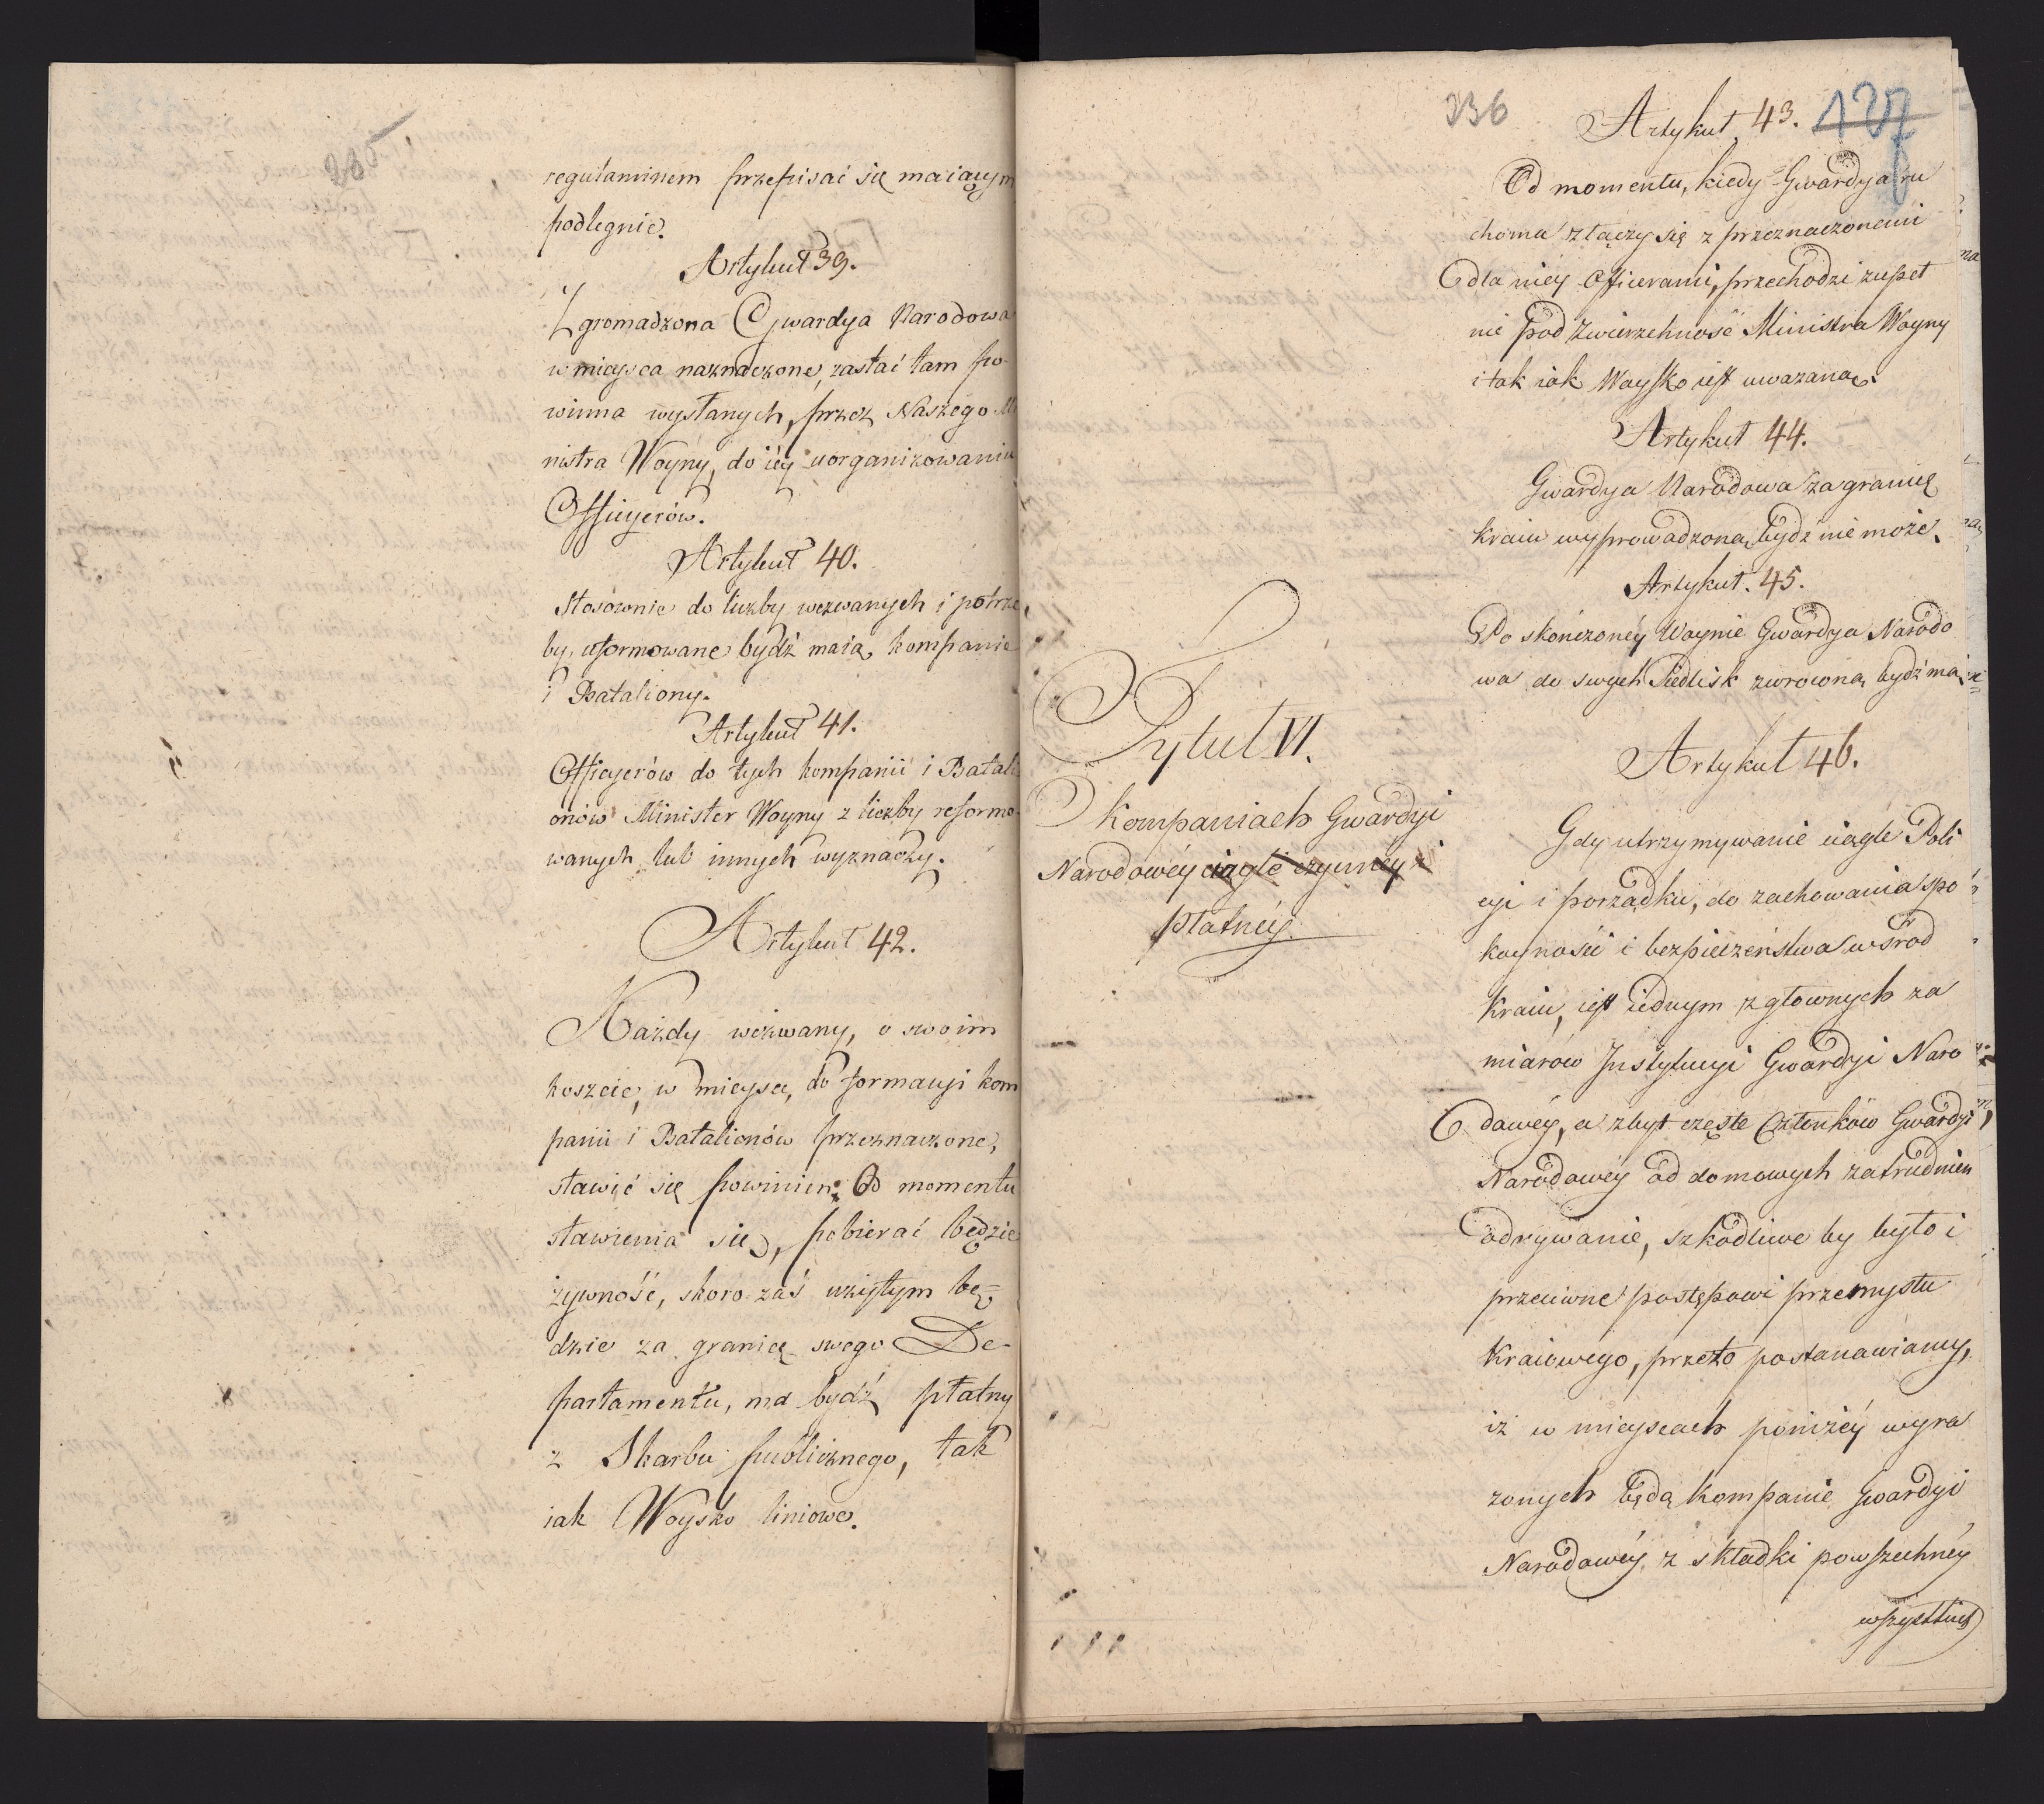 235
regulaminem przepisać się maiącym
podlegnie.
Artykuł 39.
Zgromadzona Gwardya Narodowa
w mieysca naznaczone, zastać tam po-
winna wysłanych, przez Naszego Mi
nistra Woyny, do iéy uorganizowania
Officyerów.
Artykuł 40.
Stosownie do liczby wezwanych i potrze
by, uformowane bydź maią kompanie
i Bataliony.
Artykuł 41.
Officyerów do tych kompanii i Batali
onów Minister Woyny z liczby reformo-
wanych lub innych wyznaczy.
Artykuł 42.
Każdy wezwany, o swoim
koszcie, w mieysce, do formacyi kom
panii i Batalionów przeznaczone,
stawić się powinien; Od momentu
stawienia się, pobierać będzie
żywność, skoro zaś użytym bę-
dzie za granicę swego De-
partamentu, ma bydź płatny
z Skarbu publicznego, tak
iak Woysko liniowe.
236
127
Artykuł 43.
Od momentu, kiedy Gwardya ru
choma złączy się z przeznaczonemi
dla niéy Officerami, przechodzi zupeł
nie pod Zwierzchność Ministra Woyny
i tak iak Woysko iest uważana.
Artykuł 44.
Gwardya Narodowa za granicę
kraiu wyprowadzona bydź nie może.
Artykuł. 45.
Po skończonéy Woynie Gwardya Narodo
wa do swych Siedlisk zwrócona bydź ma.
Tytuł VI.
O Kompaniach Gwardyi
Narodowéy ciągle czynnéy i
płatnéy.
Artykuł 46.
Gdy utrzymywanie ciągłe Poli
cyi i porządku, do zachowania spo
koyności i bezpieczeństwa wśrod
Kraiu, iest iednym z głownych za
miarów Instytucyi Gwardyi Naro
dowéy, a zbyt częste Członków Gwardyi
Narodowéy od domowych zatrudnien
odrywanie, szkodliwe by było i
przeciwne postępowi przemysłu
Kraiowego, przeto postanawiamy,
iż w mieyscach poniżéy wyra
żonych będą kompanie Gwardyi
Narodowéy, z składki powszechnéy
wszystkich